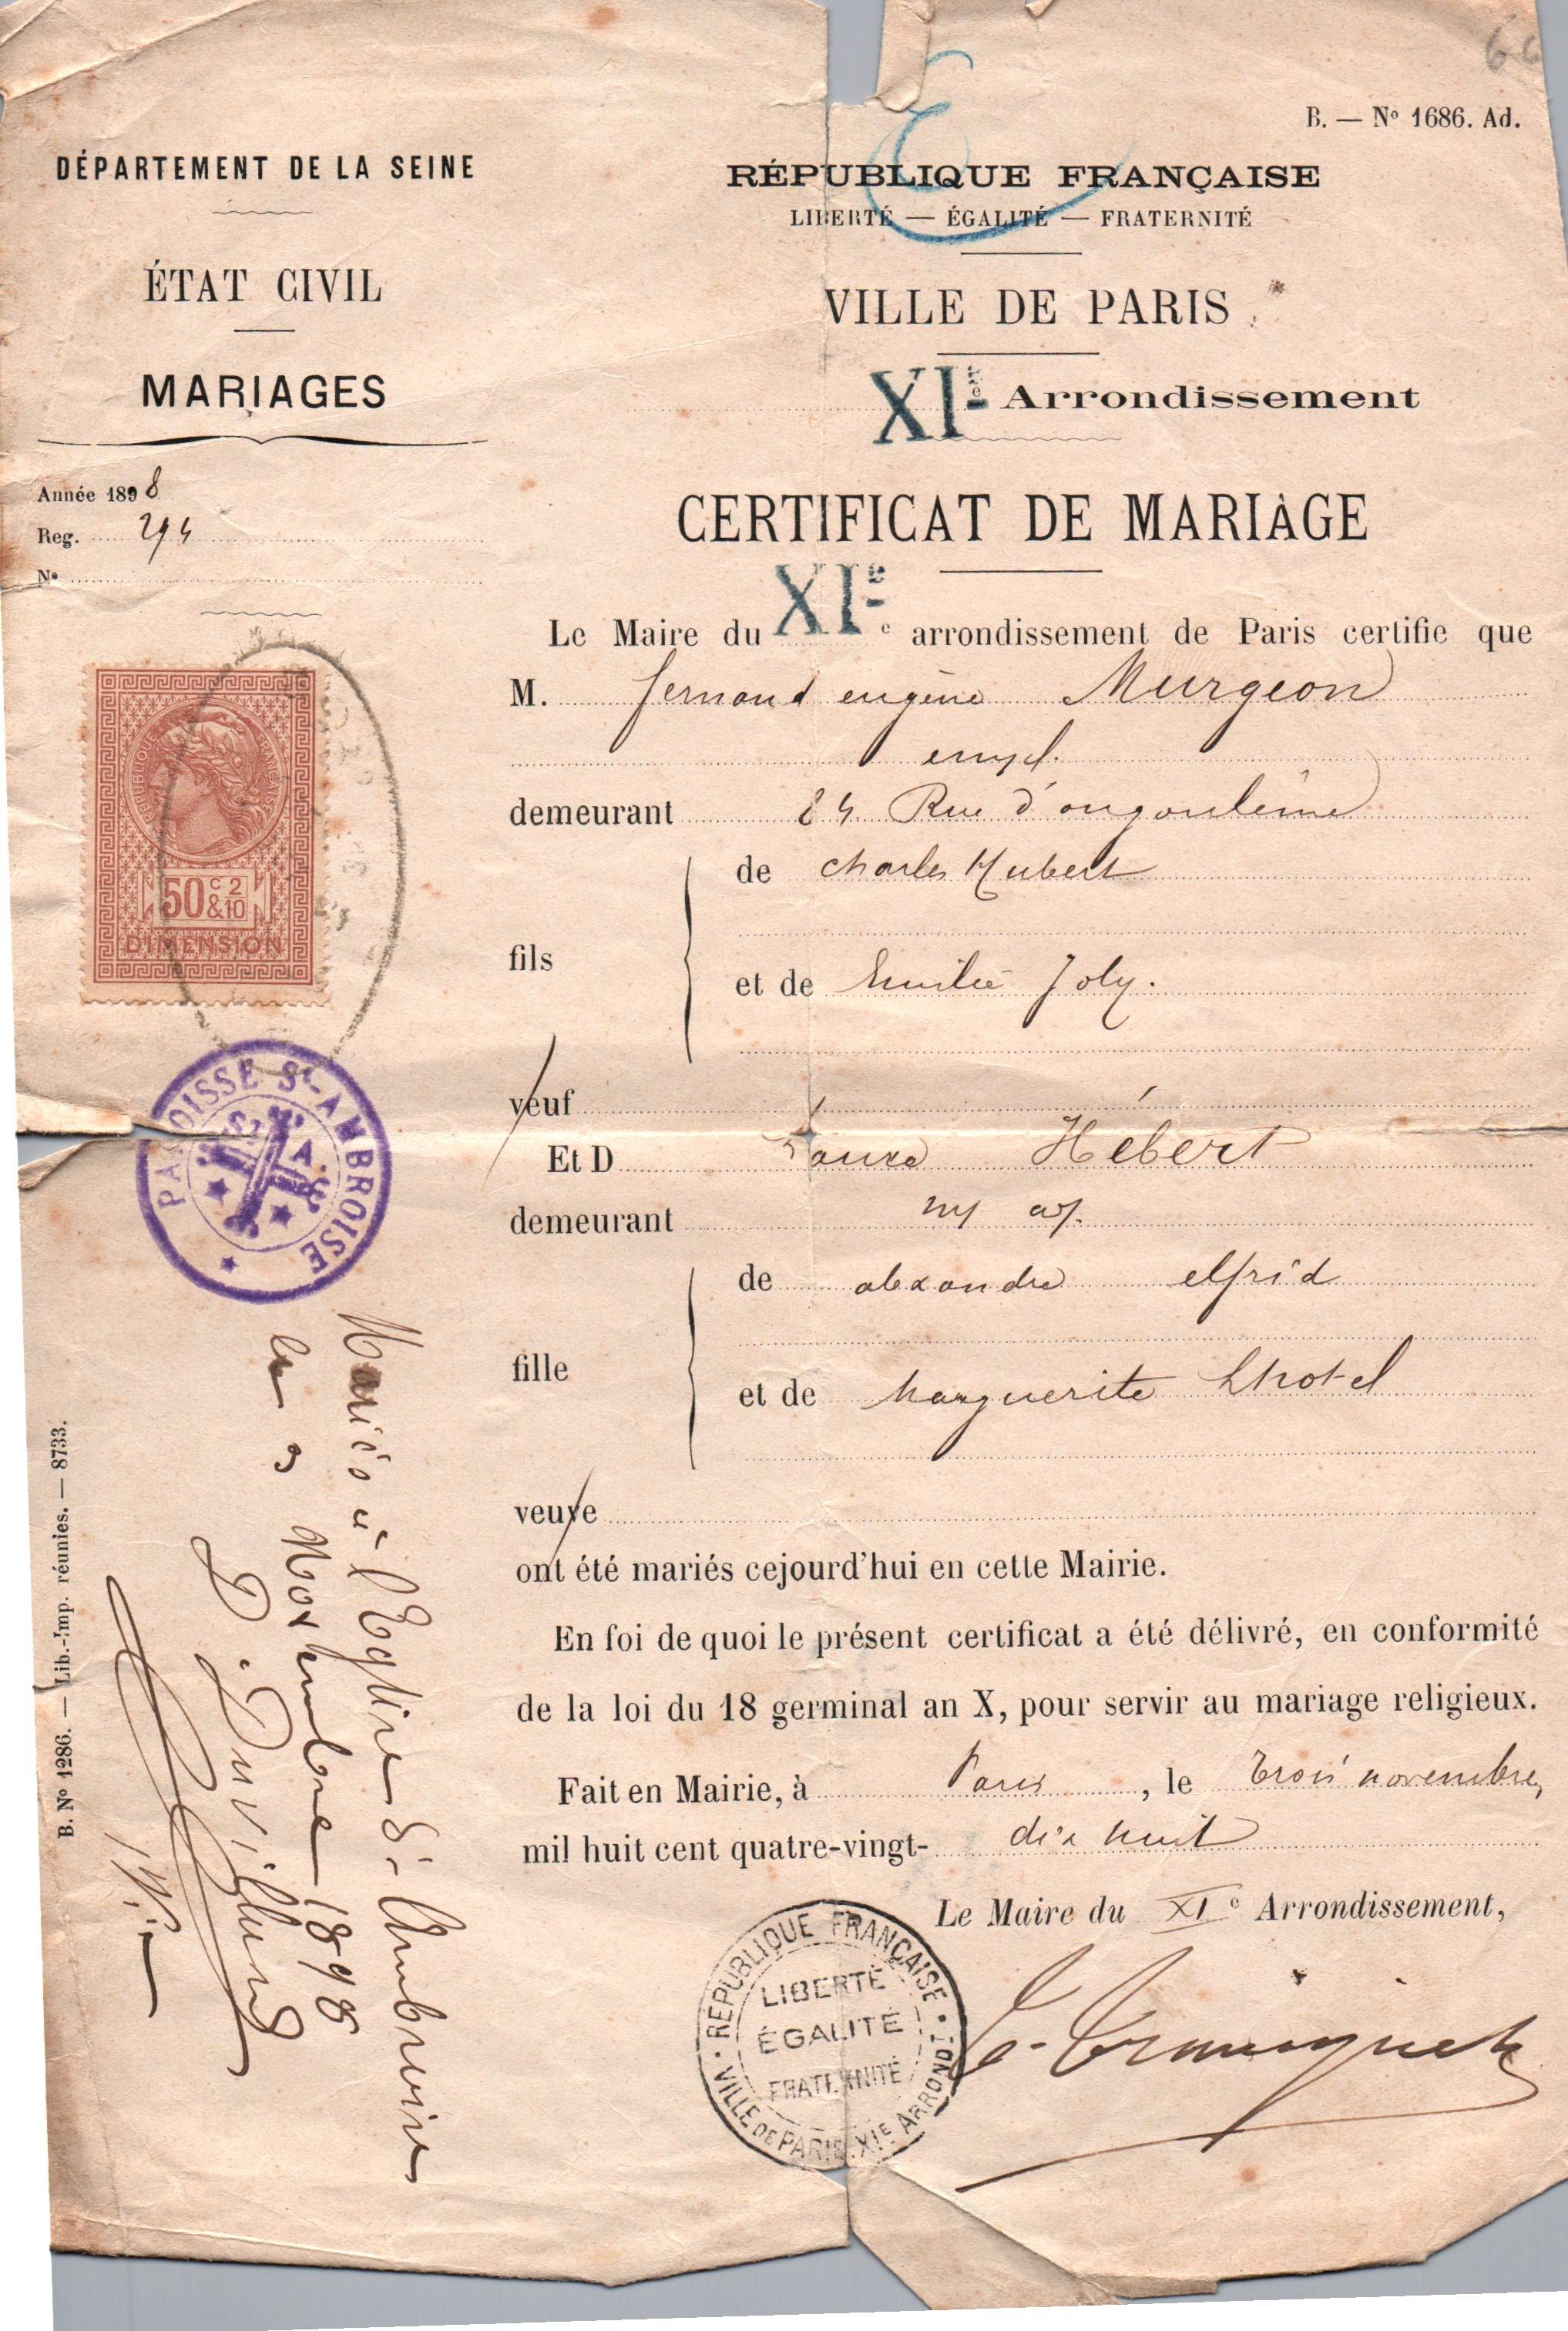 66
B. — Nº 1686. Ad.
DÉPARTEMENT DE LA SEINE
ÉTAT CIVIL
MARIAGES
Année 1898
Reg. 294
Nº
RÉPUBLIQUE FRANÇAISE
LIBERTÉ — ÉGALITÉ — FRATERNITÉ
VILLE DE PARIS
XIe Arrondissement
CERTIFICAT DE MARIAGE
Le Maire du XIe arrondissement de Paris certifie que
M. fernand eugène Murgeon
empl.
demeurant 24 Rue d'angoulème
fils
de charles Hubert
et de Emilie Joly.
veuf
Et D Laure Hébert
demeurant
fille
de alexandre elfrid
et de Marguerite Lhotel
veuve
ont été mariés cejourd'hui en cette Mairie.
En foi de quoi le présent certificat a été délivré, en conformité
de la loi du 18 germinal an X, pour servir au mariage religieux.
Fait en Mairie, à Paris, le trois novembre,
mil huit cent quatre-vingt- dix huit
Le Maire du XIe Arrondissement,
RÉPUBLIQUE FRANÇAISE
LIBERTÉ
ÉGALITÉ
FRATERNITÉ
VILLE DE PARIS XIE ARRONDT
RÉPUBLIQUE FRANÇAISE
50c & 2/10
DIMENSION
PAROISSE St-AMBROISE
S. A.
Mariés à l'Eglise St Ambroise
le 3 Novembre 1898
B. Nº 1286. — Lib.-Imp. réunies. — 8733.